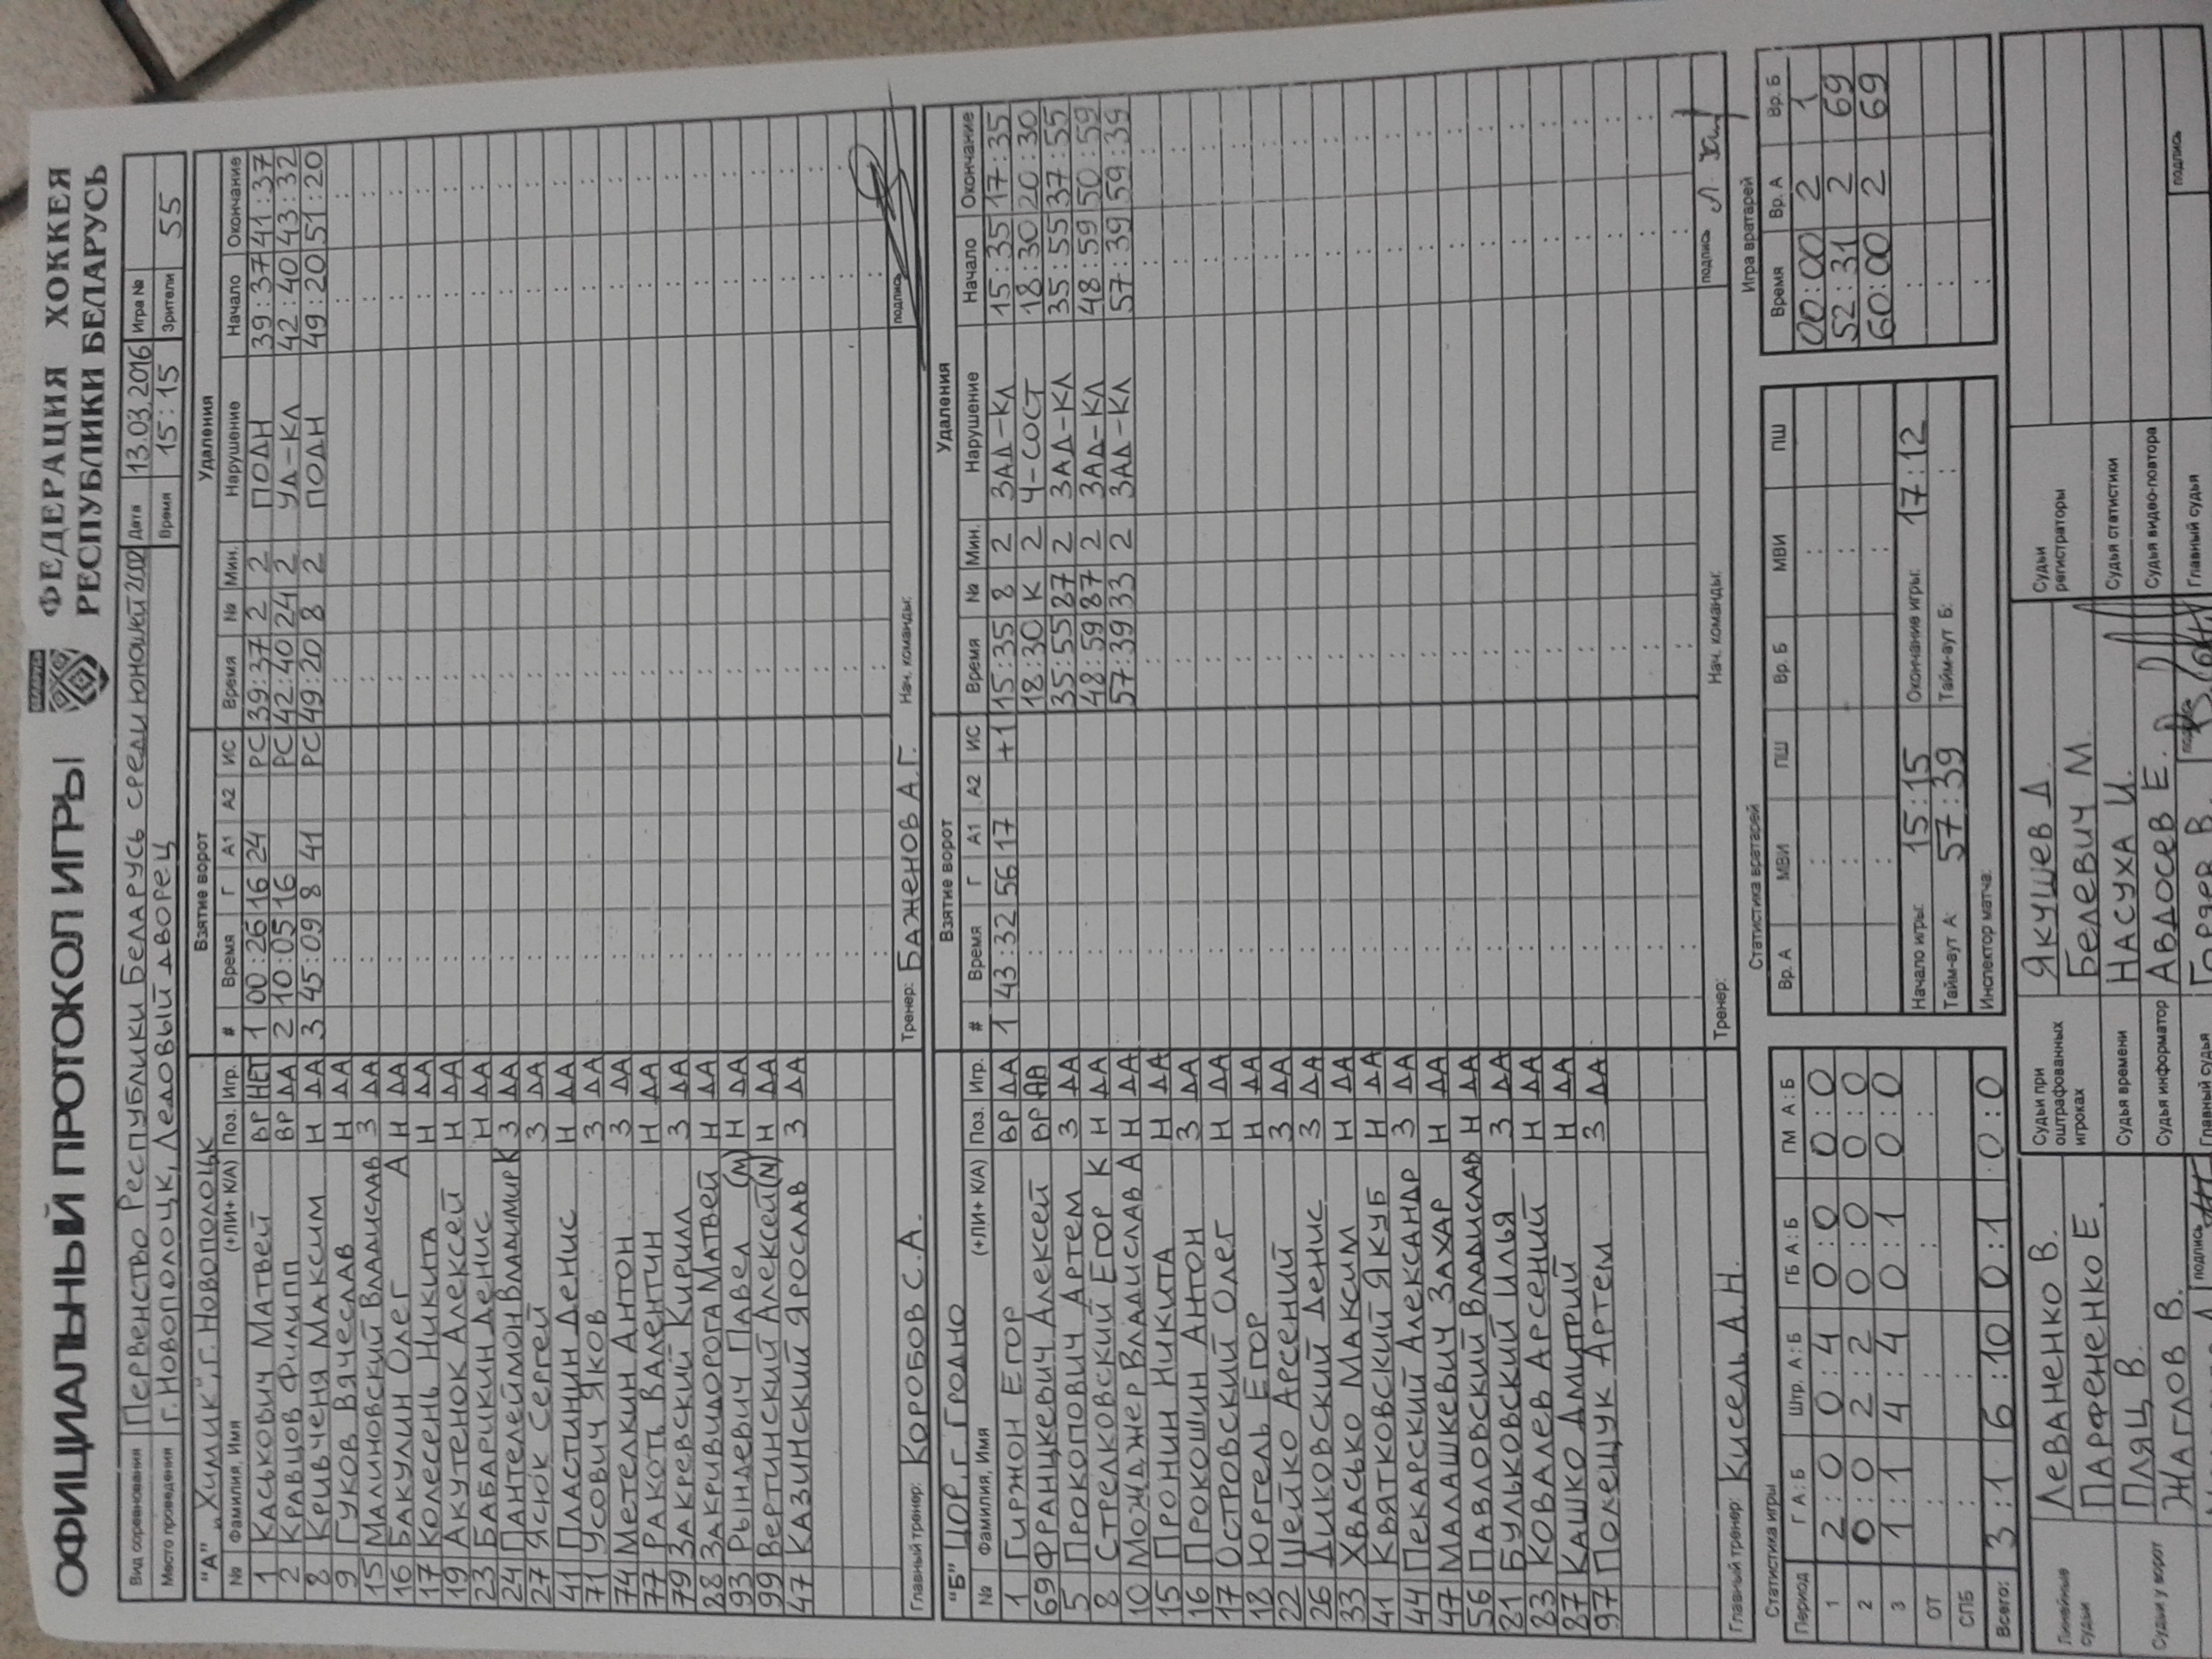 ОФИЦИАЛЬНЫЙ ПРОТОКОЛ ИГРЫ
ФЕДЕРАЦИЯ ХОККЕЯ
РЕСПУБЛИКИ БЕЛАРУСЬ
Вид соревнования Первенство Республики Беларусь среди юношей 2002 Дата 13.03.2016 Игра №
Место проведения г. Новополоцк, Ледовый дворец Время 15:15 Зрители 55
"А" "Химик", г. Новополоцк Взятие ворот Удаления
№ Фамилия, Имя (+ЛИ+ К/А) Поз. Игр. # Время Г А1 А2 ИС Время № Мин. Нарушение Начало Окончание
1 Каськович Матвей ВР НЕТ 1 00:26 16 24 РС 39:37 2 2 ПОДН 39:37 41:37
2 Кравцов Филипп ВР ДА 2 10:05 16 РС 42:40 24 2 УД-КЛ 42:40 43:32
8 Кривченя Максим Н ДА 3 45:09 8 41 РС 49:20 8 2 ПОДН 49:20 51:20
9 Гуков Вячеслав Н ДА
15 Малиновский Владислав З ДА
16 Бакулин Олег А Н ДА
17 Колесень Никита Н ДА
19 Акутенок Алексей Н ДА
23 Бабарикин Денис Н ДА
24 Пантелеймон Владимир К З ДА
27 Ясюк Сергей З ДА
41 Пластинин Денис Н ДА
71 Усович Яков З ДА
74 Метелкин Антон З ДА
77 Ракоть Валентин Н ДА
79 Закревский Кирилл З ДА
88 Закривидорога Матвей Н ДА
93 Рынлевич Павел (М) Н ДА
99 Вертинский Алексей (М) Н ДА
47 Казинский Ярослав З ДА
Главный тренер: Коробов С.А. Тренер: Баженов А.Г. Нач. команды: подпись
"Б" ЦОР, г. Гродно Взятие ворот Удаления
№ Фамилия, Имя (+ЛИ+ К/А) Поз. Игр. # Время Г А1 А2 ИС Время № Мин. Нарушение Начало Окончание
1 Гиржон Егор ВР ДА 1 43:32 56 17 +1 15:35 8 2 ЗАД-КЛ 15:35 17:35
69 Францкевич Алексей ВР ДА 18:30 К 2 Ч-СОСТ 18:30 20:30
5 Прокопович Артем З ДА 35:55 87 2 ЗАД-КЛ 35:55 37:55
8 Стрелковский Егор К Н ДА 48:59 87 2 ЗАД-КЛ 48:59 50:59
10 Можджер Владислав А Н ДА 57:39 33 2 ЗАД-КЛ 57:39 59:39
15 Пронин Никита Н ДА
16 Прокошин Антон З ДА
17 Островский Олег Н ДА
18 Юргель Егор Н ДА
22 Шейко Арсений З ДА
26 Диковский Денис З ДА
33 Хвасько Максим Н ДА
41 Квятковский Якуб Н ДА
44 Пекарский Александр З ДА
47 Малашкевич Захар Н ДА
56 Павловский Владислав Н ДА
81 Бульковский Илья З ДА
83 Ковалев Арсений Н ДА
87 Кашко Дмитрий Н ДА
97 Полещук Артем З ДА
Главный тренер: Кисель А.Н. Тренер: Нач. команды: подпись
Статистика игры Статистика вратарей Игра вратарей
Период Г А:Б Штр. А:Б ГБ А:Б ПМ А:Б Вр. А МВИ ПШ Вр. Б МВИ ПШ Время Вр. А Вр. Б
1 2:0 0:4 0:0 0:0 00:00 2 1
2 0:0 2:2 0:0 0:0 52:31 2 69
3 1:1 4:4 0:1 0:0 60:00 2 69
ОТ Начало игры: 15:15 Окончание игры: 17:12
СПБ Тайм-аут А: 57:39 Тайм-аут Б:
Всего: 3:1 6:10 0:1 0:0 Инспектор матча:
Линейные судьи Леваненко В. Судьи при оштрафованных игроках Якушев Д. Судьи регистраторы
Парфененко Е. Белевич М.
Судьи у ворот Пляц В. Судья времени Насуха И. Судья статистики
Жаглов В. Судья информатор Авдосев Е. Судья видео-повтора
подпись Главный судья подпись Главный судья подпись